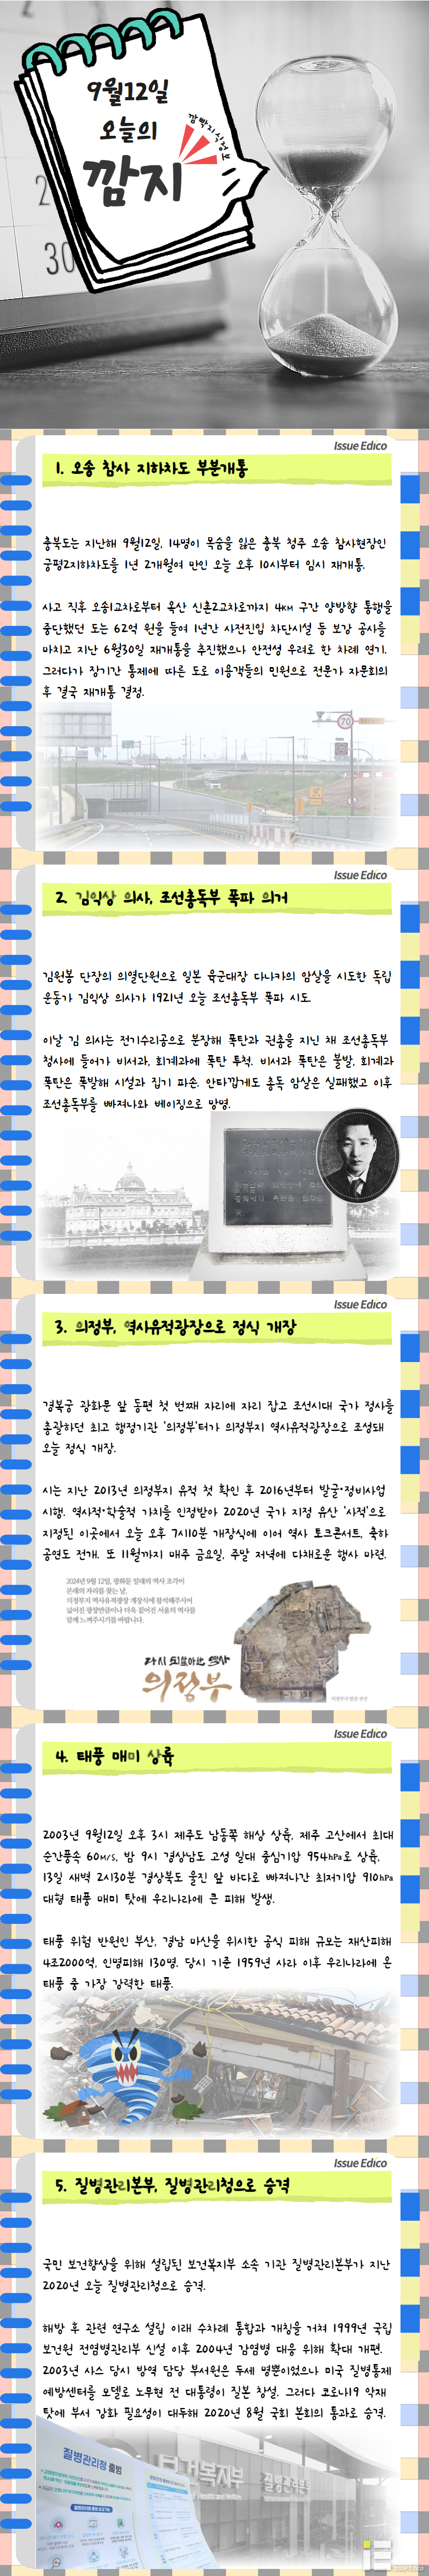 9월12일
오늘의
깜빡지식정보
깜지
2
30
Issue Edico
1. 오송 참사 지하차도 부분개통
충북도는 지난해 9월12일, 14명이 목숨을 잃은 충북 청주 오송 참사현장인
궁평2지하차도를 1년 2개월여 만인 오늘 오후 10시부터 임시 재개통.
사고 직후 오송1교차로부터 옥산 신촌2교차로까지 4KM 구간 양방향 통행을
중단했던 도는 62억 원을 들여 1년간 사전진입 차단시설 등 보강 공사를
마치고 지난 6월30일 재개통을 추진했으나 안전성 우려로 한 차례 연기.
그러다가 장기간 통제에 따른 도로 이용객들의 민원으로 전문가 자문회의
후 결국 재개통 결정.
70
Issue Edico
2. 김익상 의사, 조선총독부 폭파 의거
김원봉 단장의 의열단원으로 일본 육군대장 다나카의 암살을 시도한 독립
운동가 김익상 의사가 1921년 오늘 조선총독부 폭파 시도.
이날 김 의사는 전기수리공으로 분장해 폭탄과 권총을 지닌 채 조선총독부
청사에 들어가 비서과, 회계과에 폭탄 투척. 비서과 폭탄은 불발, 회계과
폭탄은 폭발해 시설과 집기 파손. 안타깝게도 총독 암살은 실패했고 이후
조선총독부를 빠져나와 베이징으로 망명.
Issue Edico
3. 의정부, 역사유적광장으로 정식 개장
경복궁 광화문 앞 동편 첫 번째 자리에 자리 잡고 조선시대 국가 정사를
총괄하던 최고 행정기관 '의정부'터가 의정부지 역사유적광장으로 조성돼
오늘 정식 개장.
시는 지난 2013년 의정부지 유적 첫 확인 후 2016년부터 발굴·정비사업
시행. 역사적·학술적 가치를 인정받아 2020년 국가 지정 유산 '사적'으로
지정된 이곳에서 오늘 오후 7시10분 개장식에 이어 역사 토크콘서트, 축하
공연도 전개. 또 11월까지 매주 금요일, 주말 저녁에 다채로운 행사 마련.
2024년 9월 12일, 광화문 일대의 역사 조각이
본래의 자리를 찾는 날.
의정부지 역사유적광장 개장식에 참석해주시어
넓어진 광장만큼이나 더욱 깊어진 서울의 역사를
함께 느껴주시기를 바랍니다.
다시 되살아난 역사
의정부
의정부지 발굴 전경
Issue Edico
4. 태풍 매미 상륙
2003년 9월12일 오후 3시 제주도 남동쪽 해상 상륙, 제주 고산에서 최대
순간풍속 60M/S, 밤 9시 경상남도 고성 일대 중심기압 954hPa로 상륙,
13일 새벽 2시30분 경상북도 울진 앞 바다로 빠져나간 최저기압 910hPa
대형 태풍 매미 탓에 우리나라에 큰 피해 발생.
태풍 위험 반원인 부산, 경남 마산을 위시한 공식 피해 규모는 재산피해
4조2000억, 인명피해 130명. 당시 기준 1959년 사라 이후 우리나라에 온
태풍 중 가장 강력한 태풍.
Issue Edico
5. 질병관리본부, 질병관리청으로 승격
국민 보건향상을 위해 설립된 보건복지부 소속 기관 질병관리본부가 지난
2020년 오늘 질병관리청으로 승격.
해방 후 관련 연구소 설립 이래 수차례 통합과 개칭을 거쳐 1999년 국립
보건원 전염병관리부 신설 이후 2004년 감염병 대응 위해 확대 개편.
2003년 사스 당시 방역 담당 부서원은 두세 명뿐이었으나 미국 질병통제
예방센터를 모델로 노무현 전 대통령이 질본 창설. 그러다 코로나19 악재
탓에 부서 강화 필요성이 대두해 2020년 8월 국회 본회의 통과로 승격.
질병관리청 출범
보건복지부
질병관리본부
IE
Issue Edico